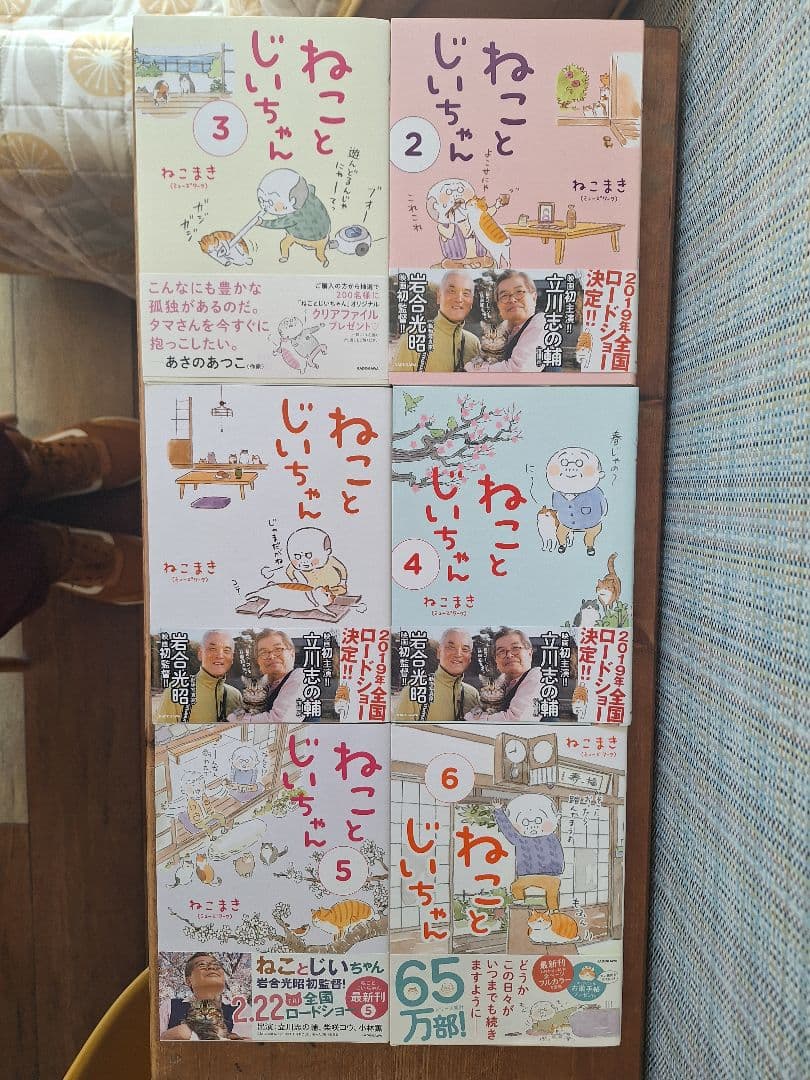 ねこと
じいちゃん
3
ねこまき
(ミューズワーク)
遊んどるんじゃ
にゃーてっ
ブオー
ガジ
ガジ
こんなにも豊かな
孤独があるのだ。
タマさんを今すぐに
抱っこしたい。
あさのあつこ(作家)
ご購入の方から抽選で
200名様に
「ねことじいちゃん」オリジナル
クリアファイル
プレゼント
KADOKAWA
ねこと
じいちゃん
2
ねこまき
(ミューズワーク)
よこせにゃ
これこれ
2019年全国
ロードショー
決定!!
映画初主演!!
立川志の輔
岩合光昭
映画初監督!!
ねこと
じいちゃん
ねこまき
(ミューズワーク)
じゃまだがね
2019年全国
ロードショー
決定!!
映画初主演!!
立川志の輔
岩合光昭
映画初監督!!
ねこと
じいちゃん
4
ねこまき
(ミューズワーク)
春じゃの〜
に〜
2019年全国
ロードショー
決定!!
映画初主演!!
立川志の輔
岩合光昭
映画初監督!!
ねこと
じいちゃん
5
ねこまき
(ミューズワーク)
ねことじいちゃん
岩合光昭初監督!
2.22
全国
ロードショー
最新刊
5
出演:立川志の輔、柴咲コウ、小林薫
ねこまき
(ミューズワーク)
6
ねこと
じいちゃん
65
万部!
どうか
この日々が
いつまでも続き
ますように
最新刊
フルカラー
お薬手帳
KADOKAWA